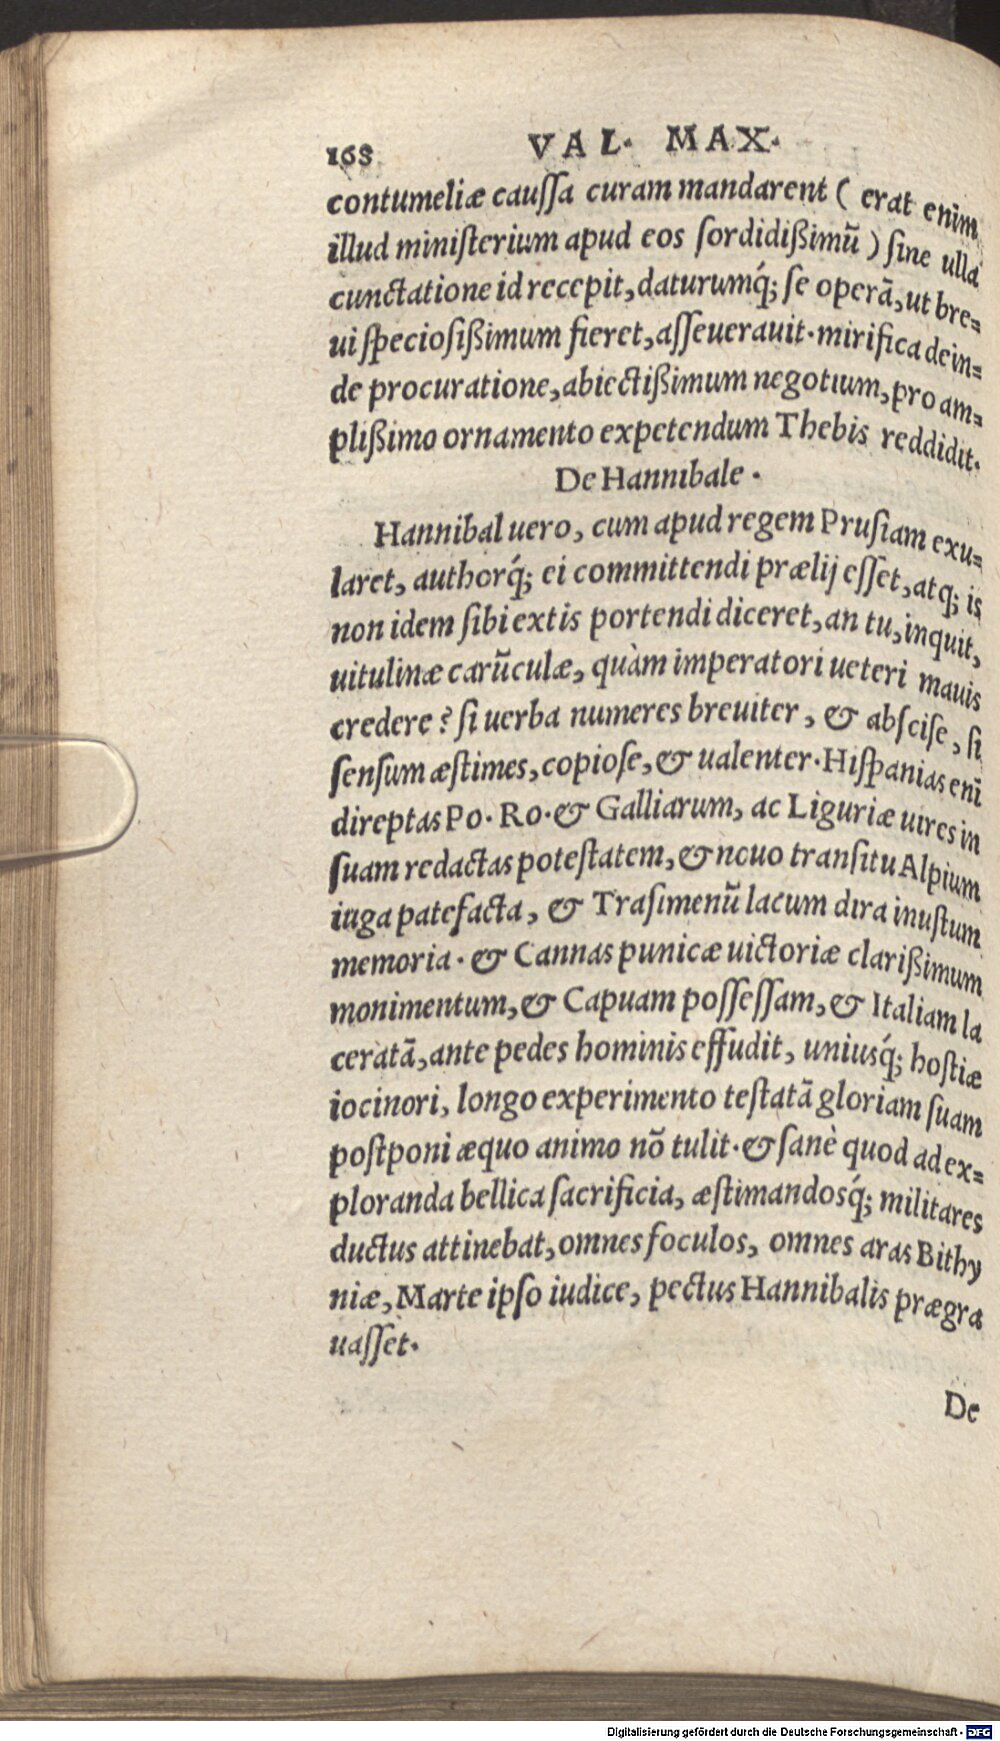 168 VAL· MAX·
contumeliæ cauſſa curam mandarent ( erat enim
illud miniſterium apud eos ſordidißimũ ) ſine ulla
cunctatione id recepit, daturumq́; ſe operã, ut bre=
ui ſpecioſißimum fieret, aſſeuerauit· mirifica dein=
de procuratione, abiectißimum negotium, pro am=
plißimo ornamento expetendum Thebis reddidit.
De Hannibale ·
Hannibal uero, cum apud regem Pruſiam exu=
laret, authorq́; ei committendi prælij eſſet, atq; is
non idem ſibi extis portendi diceret, an tu, inquit,
uitulinæ carũculæ, quàm imperatori ueteri mauis
credere? ſi uerba numeres breuiter, & abſciſe, ſi
ſenſum æſtimes, copioſe, & ualenter· Hiſpanias enĩ
direptas Po· Ro· & Galliarum, ac Liguriæ uires in
ſuam redactas poteſtatem, & nouo tranſitu Alpium
iuga patefacta, & Traſimenũ lacum dira inuſtum
memoria· & Cannas punicæ uictoriæ clarißimum
monimentum, & Capuam poſſeſſam, & Italiam la
ceratã, ante pedes hominis effudit, uniusq́; hoſtiæ
iocinori, longo experimento teſtatã gloriam ſuam
poſtponi æquo animo nõ tulit· & ſanè quod ad ex=
ploranda bellica ſacrificia, æſtimandosq́; militares
ductus attinebat, omnes foculos, omnes aras Bithy
niæ, Marte ipſo iudice, pectus Hannibalis prægra
uaſſet·
De
Digitalisierung gefördert durch die Deutsche Forschungsgemeinschaft - DFG